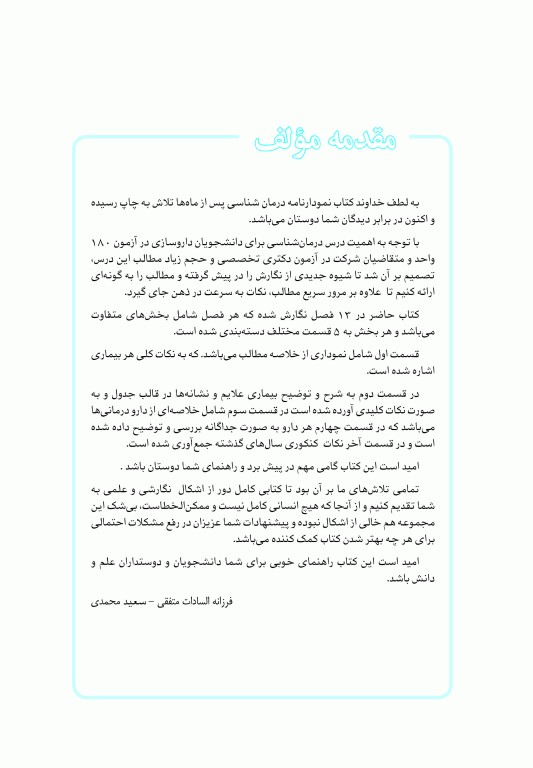 مقدمه مؤلف
به لطف خداوند کتاب نمودارنامه درمان شناسی پس از ماه‌ها تلاش به چاپ رسیده
و اکنون در برابر دیدگان شما دوستان می‌باشد.
با توجه به اهمیت درس درمان‌شناسی برای دانشجویان داروسازی در آزمون ۱۸۰
واحد و متقاضیان شرکت در آزمون دکتری تخصصی و حجم زیاد مطالب این درس،
تصمیم بر آن شد تا شیوه جدیدی از نگارش را در پیش گرفته و مطالب را به گونه‌ای
ارائه کنیم تا علاوه بر مرور سریع مطالب، نکات به سرعت در ذهن جای گیرد.
کتاب حاضر در ۱۳ فصل نگارش شده که هر فصل شامل بخش‌های متفاوت
می‌باشد و هر بخش به ۵ قسمت مختلف دسته‌بندی شده است.
قسمت اول شامل نموداری از خلاصه مطالب می‌باشد. که به نکات کلی هر بیماری
اشاره شده است.
در قسمت دوم به شرح و توضیح بیماری علایم و نشانه‌ها در قالب جدول و به
صورت نکات کلیدی آورده شده است در قسمت سوم شامل خلاصه‌ای از دارو درمانی‌ها
می‌باشد که در قسمت چهارم هر دارو به صورت جداگانه بررسی و توضیح داده شده
است و در قسمت آخر نکات کنکوری سال‌های گذشته جمع‌آوری شده است.
امید است این کتاب گامی مهم در پیش برد و راهنمای شما دوستان باشد .
تمامی تلاش‌های ما بر آن بود تا کتابی کامل دور از اشکال نگارشی و علمی به
شما تقدیم کنیم و از آنجا که هیچ انسانی کامل نیست و ممکن‌الخطاست، بی‌شک این
مجموعه هم خالی از اشکال نبوده و پیشنهادات شما عزیزان در رفع مشکلات احتمالی
برای هر چه بهتر شدن کتاب کمک کننده می‌باشد.
امید است این کتاب راهنمای خوبی برای شما دانشجویان و دوستداران علم و
دانش باشد.
فرزانه السادات متفقی – سعید محمدی